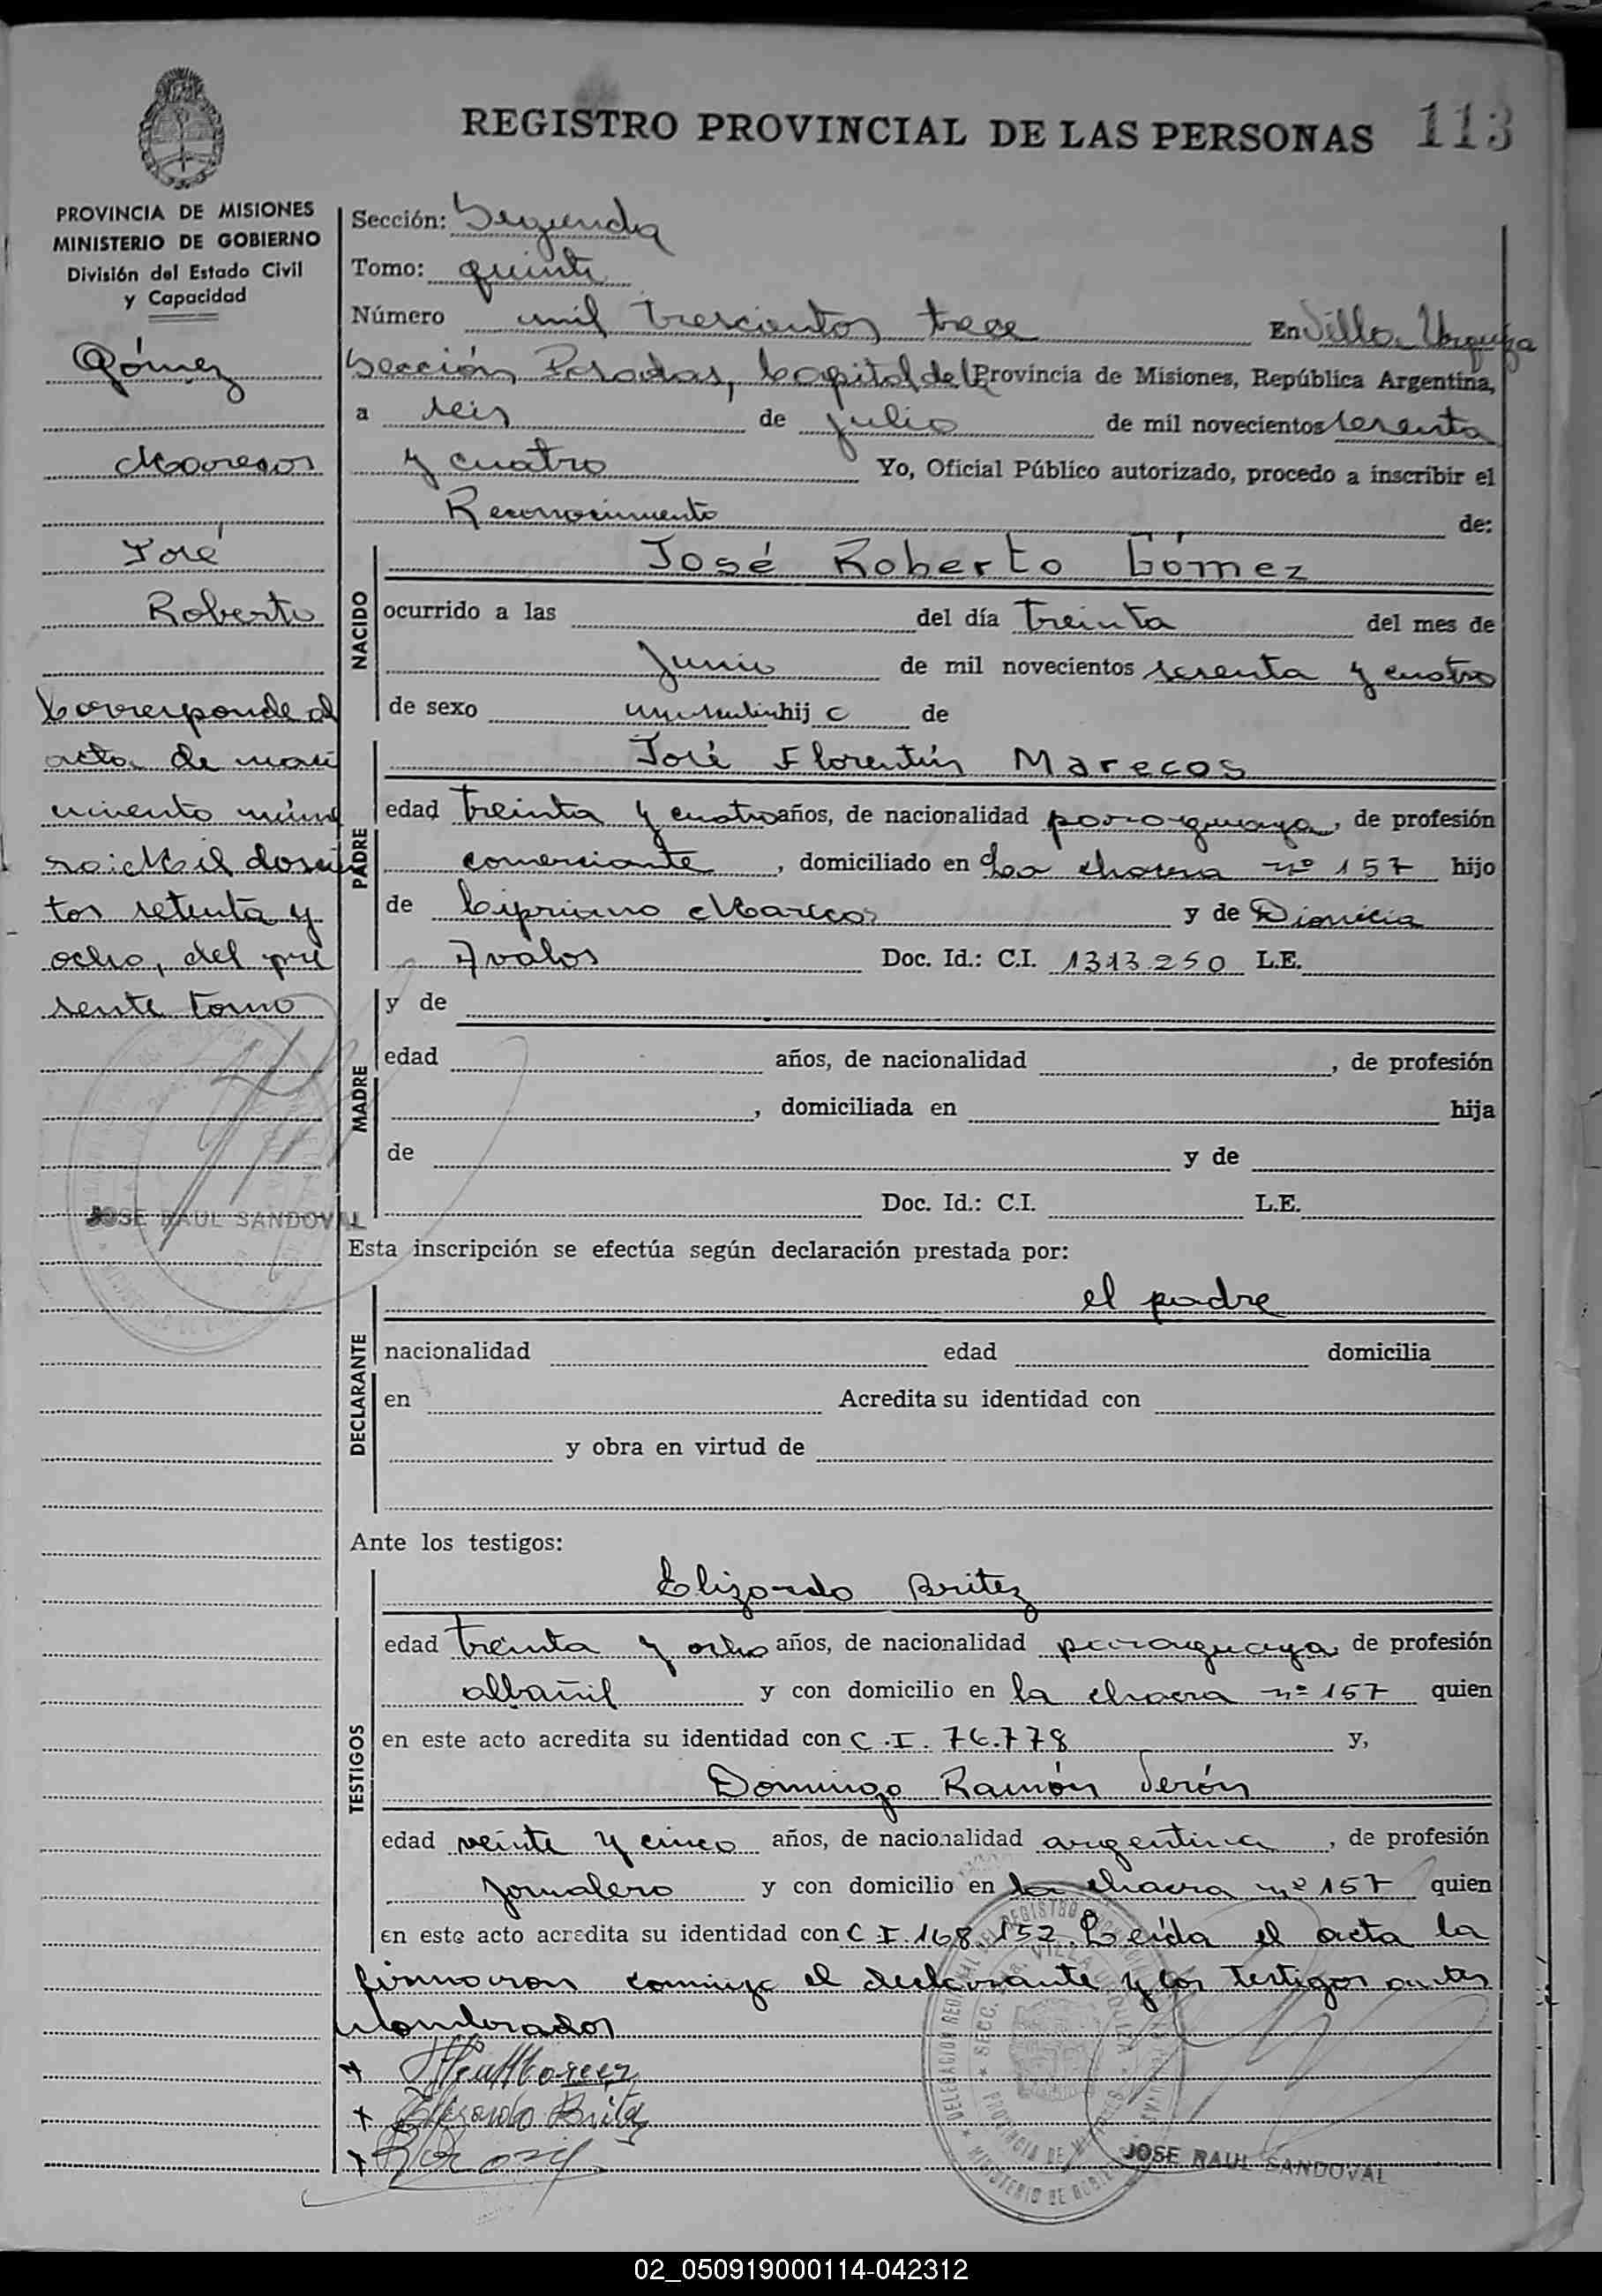 REGISTRO PROVINCIAL DE LAS PERSONAS 113
PROVINCIA DE MISIONES
MINISTERIO DE GOBIERNO
División del Estado Civil
y Capacidad
Gómez
Marecos
José
Roberto
Corresponde al
acta de naci
miento núme
ro: Mil doscien
tos setenta y
ocho, del pre
sente tomo
JOSE RAUL SANDOVAL
Sección: Segunda
Tomo: quinto
Número mil trescientos trece En Villa Urquiza
Sección Posadas, Capital de la Provincia de Misiones, República Argentina,
a seis de julio de mil novecientos sesenta
y cuatro Yo, Oficial Público autorizado, procedo a inscribir el
Reconocimiento de:
NACIDO
José Roberto Gómez
ocurrido a las del día treinta del mes de
Junio de mil novecientos sesenta y cuatro
de sexo masculino hijo de
PADRE
José Florentín Marecos
edad treinta y cuatro años, de nacionalidad paraguaya, de profesión
comerciante, domiciliado en La chacra nº 157 hijo
de Cipriano Marecos y de Dionicia
Avalos Doc. Id.: C.I. 1313.250 L.E.
MADRE
y de
edad años, de nacionalidad , de profesión
, domiciliada en hija
de y de
Doc. Id.: C.I. L.E.
Esta inscripción se efectúa según declaración prestada por:
DECLARANTE
el padre
nacionalidad edad domicilia
en Acredita su identidad con
y obra en virtud de
Ante los testigos:
TESTIGOS
Elizardo Britez
edad treinta y ocho años, de nacionalidad paraguaya de profesión
albañil y con domicilio en la chacra nº 157 quien
en este acto acredita su identidad con C.I. 76.778 y,
Domingo Ramón Verón
edad veinte y cinco años, de nacionalidad argentina, de profesión
jornalero y con domicilio en la chacra nº 157 quien
en este acto acredita su identidad con C I. 168.152. Leída el acta la
firmaron conmigo el declarante y los testigos antes
Nombrados
Elizardo Britez
JOSE RAUL SANDOVAL
02_050919000114-042312